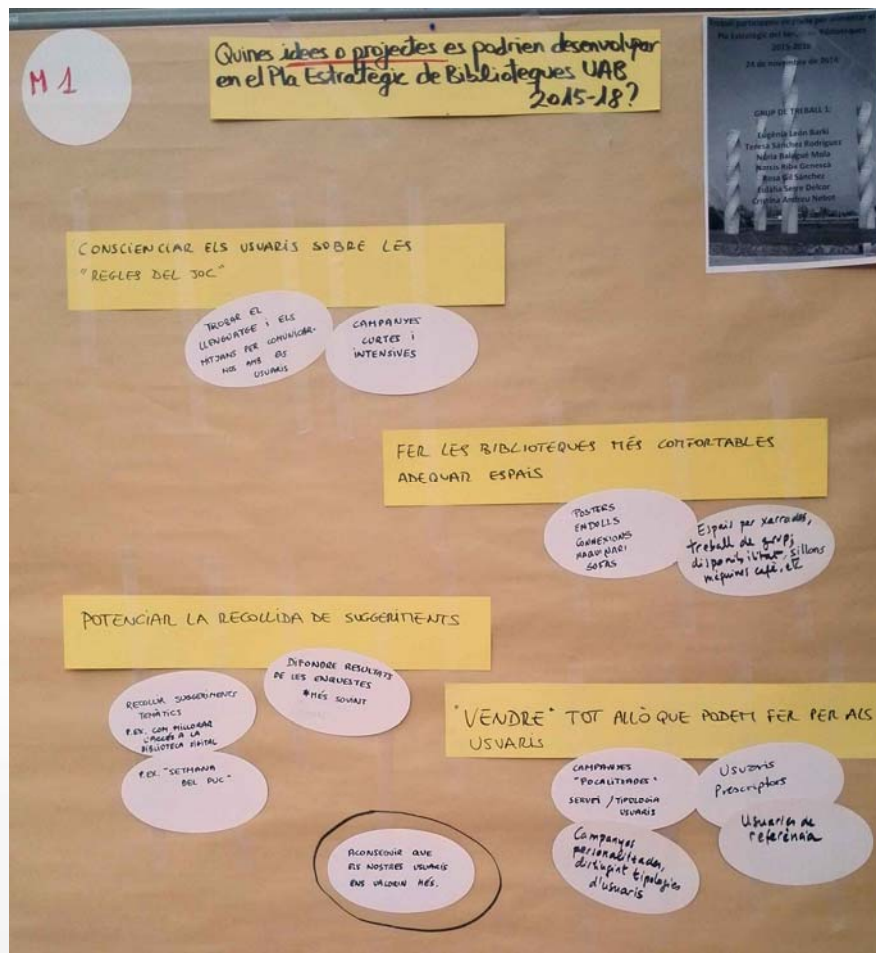 M 1
Quines idees o projectes es podrien desenvolupar
en el Pla Estratègic de Biblioteques UAB
2015-18?
Treball participatiu
Pla Estratègic del Servei de Biblioteques
2015-2018
24 de novembre de 2014
GRUP DE TREBALL 1:
Eugènia León Barki
Teresa Sánchez Rodríguez
Núria Balagué Mola
Narcís Riba Genescà
Rosa Gil Sánchez
Eulàlia Serre Delcor
Cristina Andreu Nebot
CONSCIENCIAR ELS USUARIS SOBRE LES
"REGLES DEL JOC"
TROBAR EL
LLENGUATGE I ELS
MITJANS PER COMUNICAR-
NOS AMB ELS
USUARIS
CAMPANYES
CURTES I
INTENSIVES
FER LES BIBLIOTEQUES MÉS COMFORTABLES
ADEQUAR ESPAIS
POSTERS
ENDOLLS
CONNEXIONS
MAQUINARI
SOFAS
Espais per xarrades,
treball de grup,
disponibilitat, sillons
màquines cafè, etc
POTENCIAR LA RECOLLIDA DE SUGGERIMENTS
RECOLLIR SUGGERIMENTS
TEMÀTICS
P.EX. COM MILLORAR
L'ACCÉS A LA
BIBLIOTECA DIGITAL
P.EX. "SETMANA
DEL PUC"
DIFONDRE RESULTATS
DE LES ENQUESTES
*MÉS SOVINT
"VENDRE" TOT ALLÒ QUE PODEM FER PER ALS
USUARIS
CAMPANYES
"FOCALITZADES"
SERVEI / TIPOLOGIA
USUARIS
Usuaris
Prescriptors
Campanyes
personalitzades,
distingint tipologies
d'usuaris
Usuaries de
referència
ACONSEGUIR QUE
ELS NOSTRES USUARIS
ENS VALORIN MÉS.